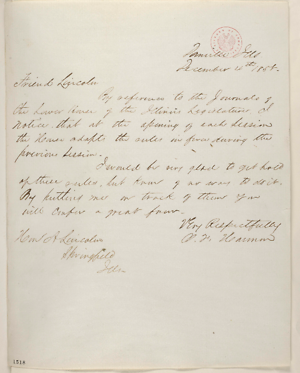 Ills
December 4th 1858.
Friend Lincoln
By reference to the Journals of
the Lower House of the Illinois Legislature I
notice that at the opening of each Session
the House adopts the rules in force during the
previous Session.
I would be very glad to get hold
of these rules, but know of no way to do it.
By putting me on track of them you
will confer a great favor.
Very Respectfully
Hon A Lincoln
Springfield
Ills